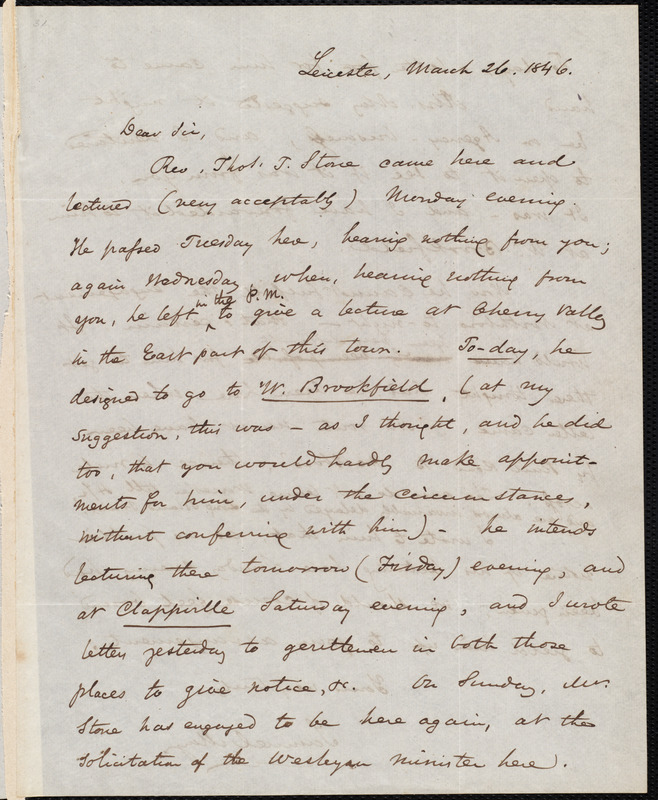 Leicester, March 26. 1846.
Dear Sir,
Rev. Thos. T. Stone came here and
lectured (very acceptably) Monday evening.
He passed Tuesday here, hearing nothing from you;
again Wednesday, when, hearing nothing from
you, he left in the P.M. to give a lecture at Cherry Valley
in the East part of this town. To-day, he
designed to go to W. Brookfield, (at my
suggestion, this was - as I thought, and he did
too, that you would hardly make appoint-
ments for him, under the circumstances,
without conferring with him) - he intends
lecturing there tomorrow (Friday) evening, and
at Clappville Saturday evening, and I wrote
letters yesterday to gentlemen in both those
places to give notice, &c. On Sunday, Mr.
Stone has engaged to be here again, at the
solicitation of the Wesleyan minister here).